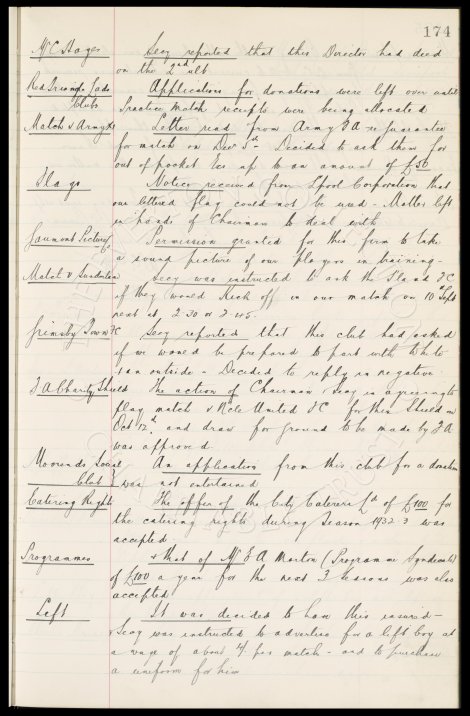 174
Mr C Hayes Secy reported that this Director had died
on the 2nd ult
Red Triangle Lads Applications for donations were left over until
Clubs Practice Match receipts were being allocated
Match v Army Letter read from Army F A re guarantee
for match on Decr 5th - Decided to ask them for
out of pocket exs up to an amount of £50
Flags Notice received from Lpool Corporation that
our lettered flag could not be used - Matter left
in hands of Chairman to deal with
Gaumont Pictures Permission granted for this firm to take
a sound picture of our players in training -
Match v Sunderland Secy was instructed to ask the Sland F C
if they would Kick off in our match on 10th Sept
next at 2-30 or 2-45.
Grimsby Town FC Secy reported that this club had asked
if we would be prepared to part with White
an outside - Decided to reply in negative
F A Charity Shield The action of Chairman & Secy in agreeing to
play match v Ncle United F C for this Shield on
Oct 12th and draw for ground to be made by F A
was approved.
Moorends Social An application from this club for a donation
Club was not entertained
Catering Rights The offer of the City Caterers Ld of £100 for
the catering rights during Season 1932-3 was
accepted
Programmes & that of Mr F A Morton (Programme Syndicate)
of £100 a year for the next 3 seasons was also
accepted
Left It was decided to have this insured -
& Secy was instructed to advertise for a lift boy at
a wage of about 4/ per match - and to purchase
a uniform for him